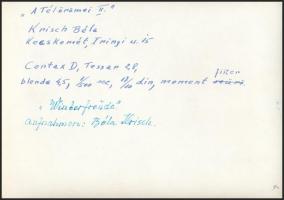 "A Tél örömei II."
Krisch Béla
Kecskemét, Irinyi u. 15
Contax D, Tessar 2,8,
filter
blende 4,5, 1/500 sec, 18/10 din, moment
"Winterfreude"
aufnahmen: Béla Krisch.